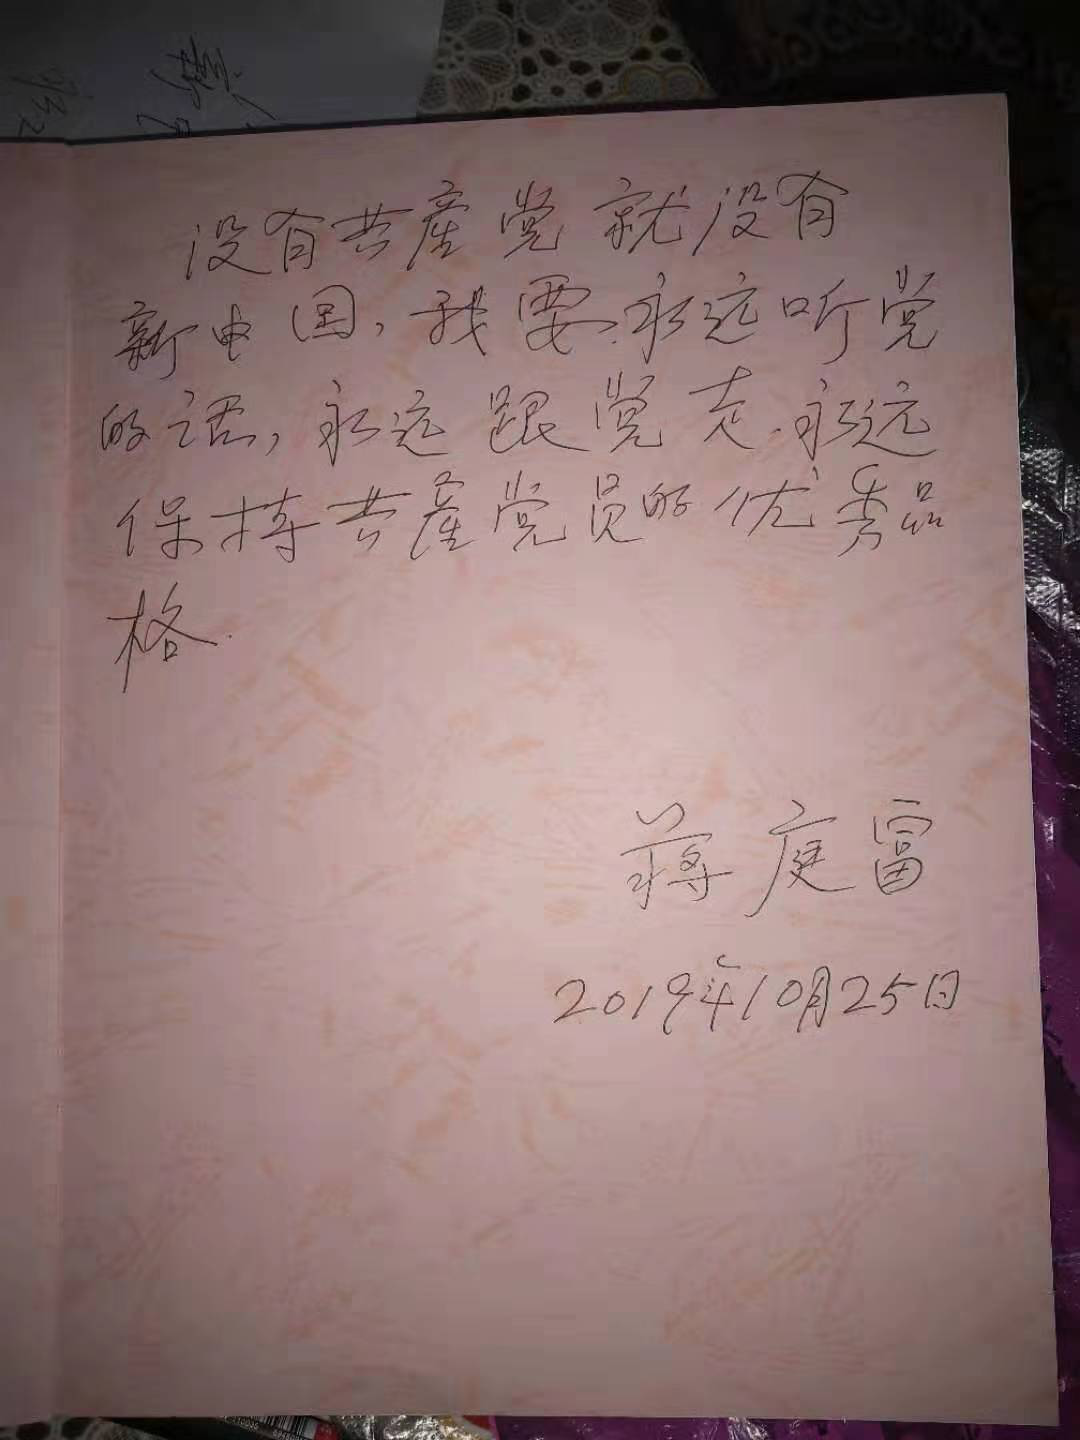 没有共產党就没有
新中国,我要永远听党
的话,永远跟党走.永远
保持共產党员的优秀品
格.
蒋庭富
2019年10月25日